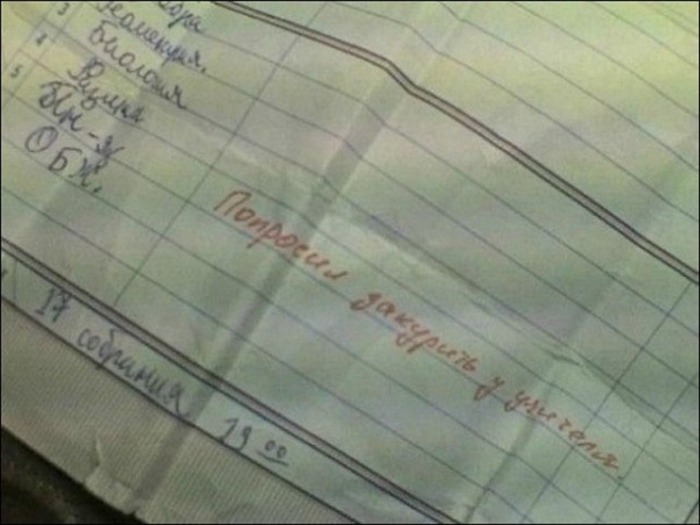 3
Геометрия.
4 Биология
5 Физика
Ин-яз
ОБЖ.
Попросил закурить у учителя.
17 собрания 19 00